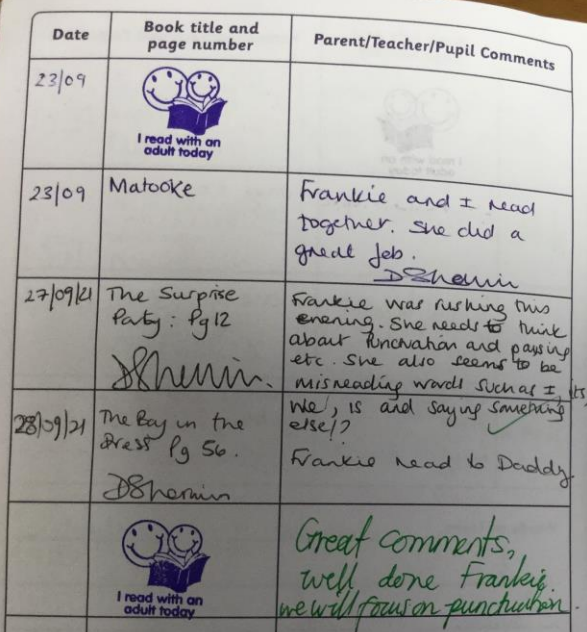 Date
Book title and
page number
Parent/Teacher/Pupil Comments
23/09
I read with an
adult today
23/09
Matooke
Frankie and I read
together. She did a
great job.
DShemin
27/09/21
The Surprise
Party: Pg 12
DShemin.
Frankie was rushing this
evening. She needs to think
about Punctuation and paysing
etc. She also seems to be
misreading words such as I, its
we, is and saying something
else!?
28/09/21
The Boy in the
Dress Pg 56.
DShemin
Frankie read to Daddy.
I read with an
adult today
Great comments,
well done Frankie.
we will focus on punctuation